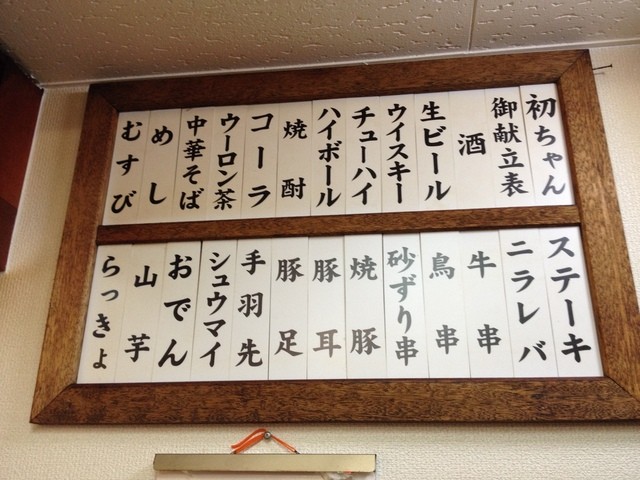 初ちゃん
御献立表
酒
生ビール
ウイスキー
チューハイ
ハイボール
焼酎
コーラ
ウーロン茶
中華そば
めし
むすび
ステーキ
ニラレバ
牛串
鳥串
砂ずり串
焼豚
豚耳
豚足
手羽先
シュウマイ
おでん
山芋
らっきょ